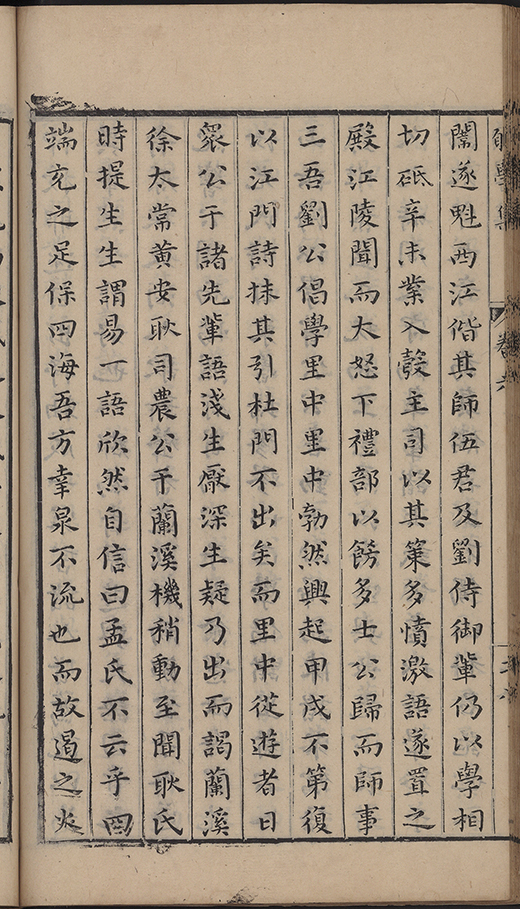 學集 卷六
闈遂魁西江偕其師伍君及劉侍御輩仍以學相
切砥辛未業入彀主司以其策多憤激語遂置之
殿江陵聞而大怒下禮部以餝多士公歸而師事
三吾劉公倡學里中里中勃然興起甲戌不第復
以江門詩抹其引杜門不出矣而里中從遊者日
衆公于諸先輩語淺生厭深生疑乃出而謁蘭溪
徐太常黄安耿司農公于蘭溪機稍動至聞耿氏
時提生生謂易一語欣然自信曰孟氏不云乎四
端充之足保四海吾方幸泉不流也而故遏之火